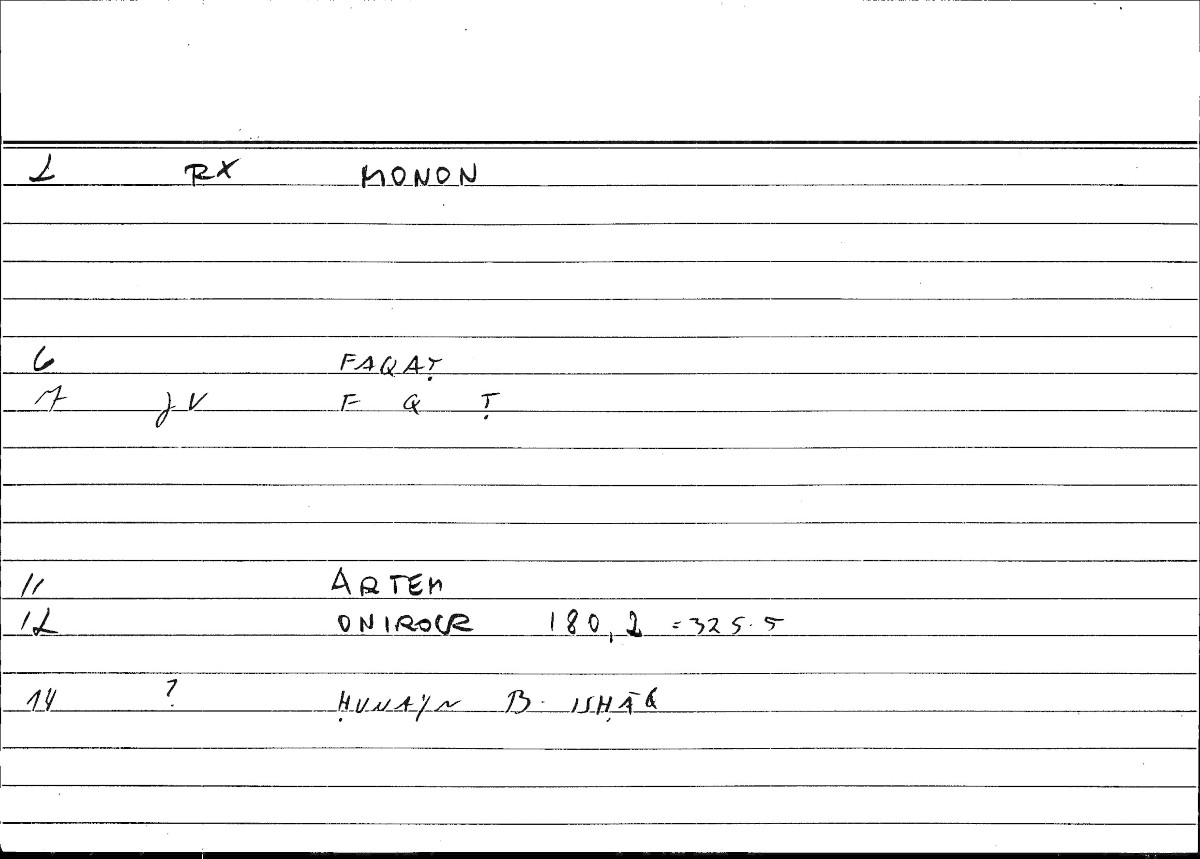 2 RX MONON
6 FAQAṬ
7 JV F Q Ṭ
11 ARTEM
12 ONIROCR 180,2 =325.5
14 ? ḤUNAYN B. ISḤĀQ